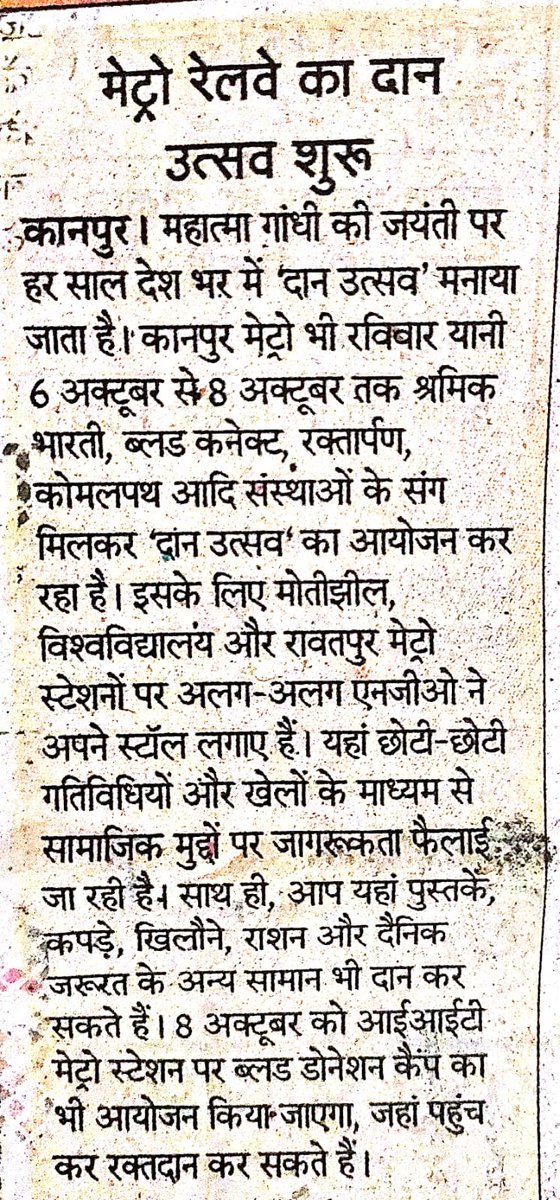 मेट्रो रेलवे का दान
उत्सव शुरू
कानपुर। महात्मा गांधी की जयंती पर
हर साल देश भर में 'दान उत्सव' मनाया
जाता है। कानपुर मेट्रो भी रविवार यानी
6 अक्टूबर से 8 अक्टूबर तक श्रमिक
भारती, ब्लड कनेक्ट, रक्तार्पण,
कोमलपथ आदि संस्थाओं के संग
मिलकर 'दान उत्सव' का आयोजन कर
रहा है। इसके लिए मोतीझील,
विश्वविद्यालय और रावतपुर मेट्रो
स्टेशनों पर अलग-अलग एनजीओ ने
अपने स्टॉल लगाए हैं। यहां छोटी-छोटी
गतिविधियों और खेलों के माध्यम से
सामाजिक मुद्दों पर जागरूकता फैलाई
जा रही है। साथ ही, आप यहां पुस्तकें,
कपड़े, खिलौने, राशन और दैनिक
जरूरत के अन्य सामान भी दान कर
सकते हैं। 8 अक्टूबर को आईआईटी
मेट्रो स्टेशन पर ब्लड डोनेशन कैंप का
भी आयोजन किया जाएगा, जहां पहुंच
कर रक्तदान कर सकते हैं।